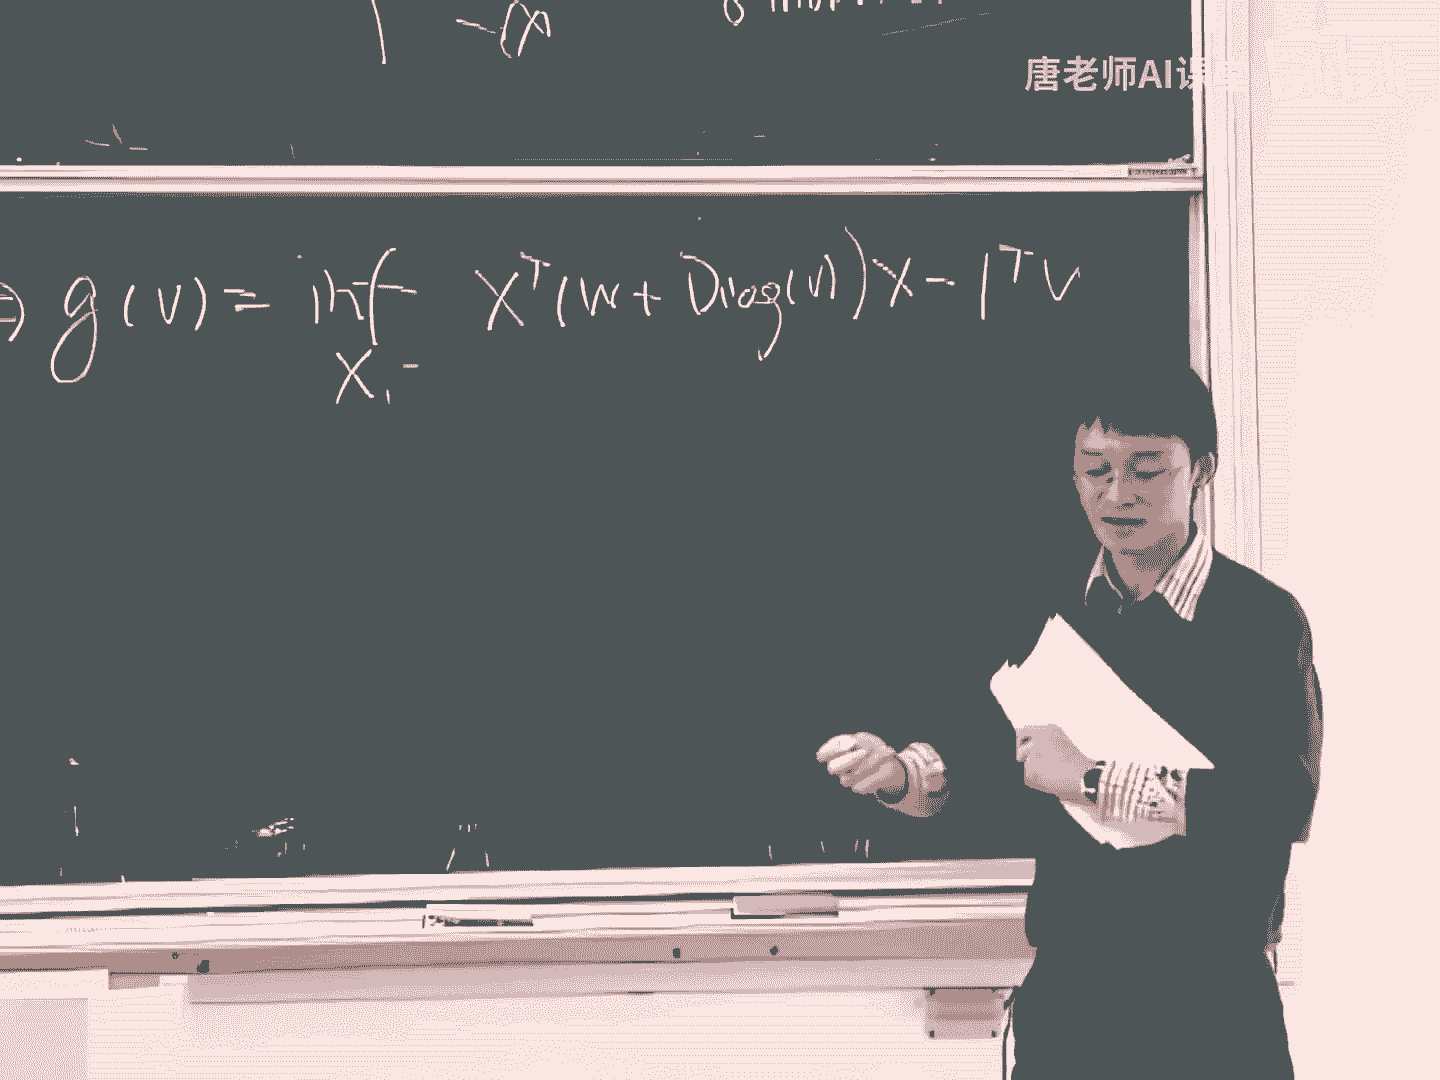 唐老师AI课
g(v) = inf x^T(W + Diag(v))x - 1^T v
x